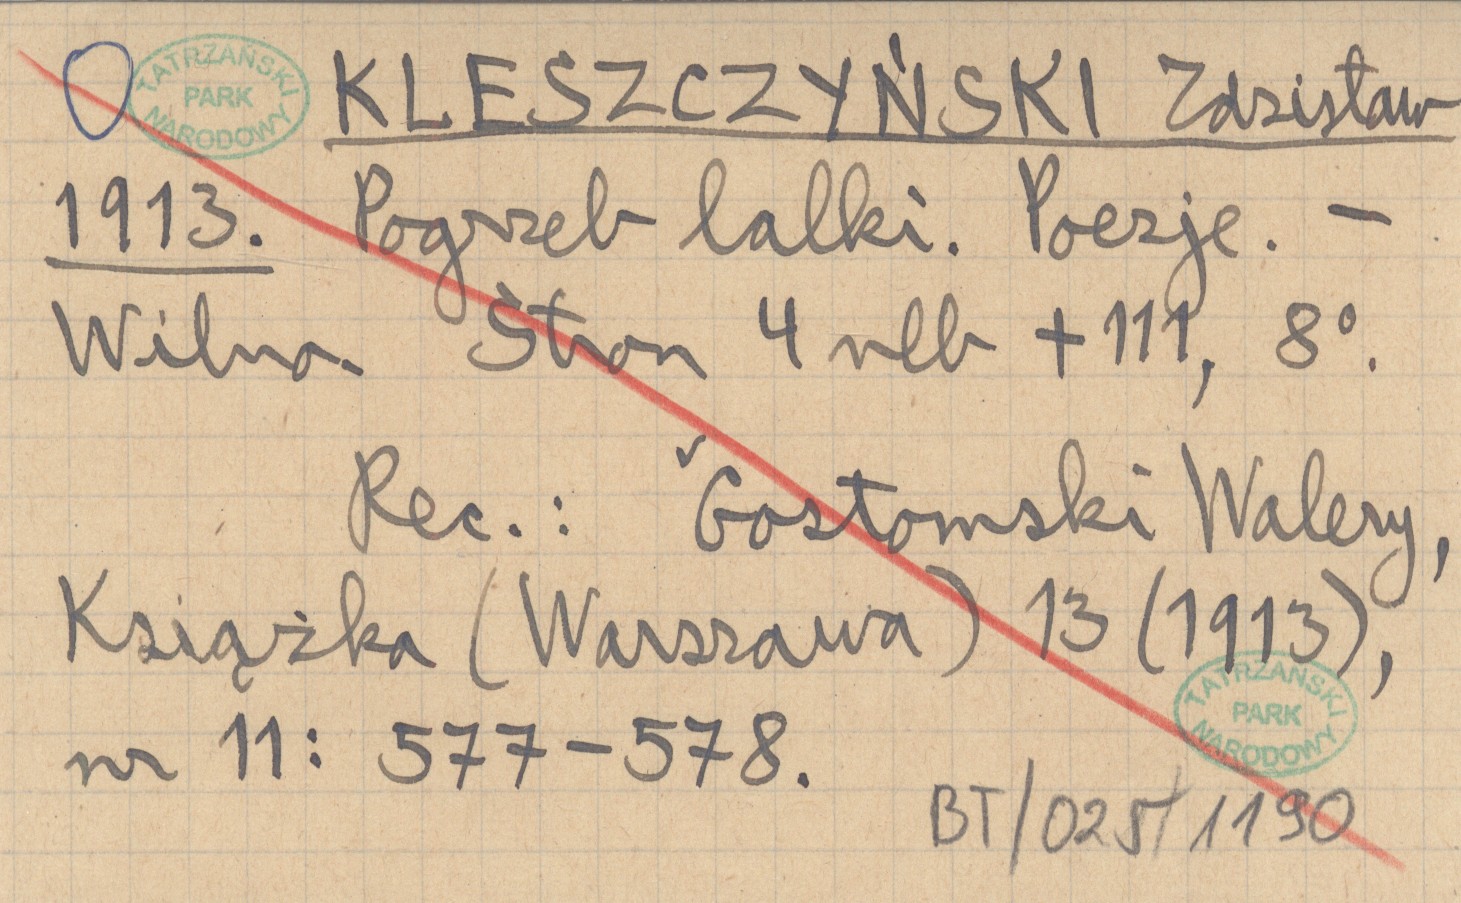 TATRZAŃSKI PARK NARODOWY
KLESZCZYŃSKI Zdzisław
1913. Pogrzeb lalki. Poezje. –
Wilno. Stron 4 nlb + 111, 8°.
Rec.: Gostomski Walery,
Książka (Warszawa) 13 (1913),
nr 11: 577–578.
TATRZAŃSKI PARK NARODOWY
BT/025/1190